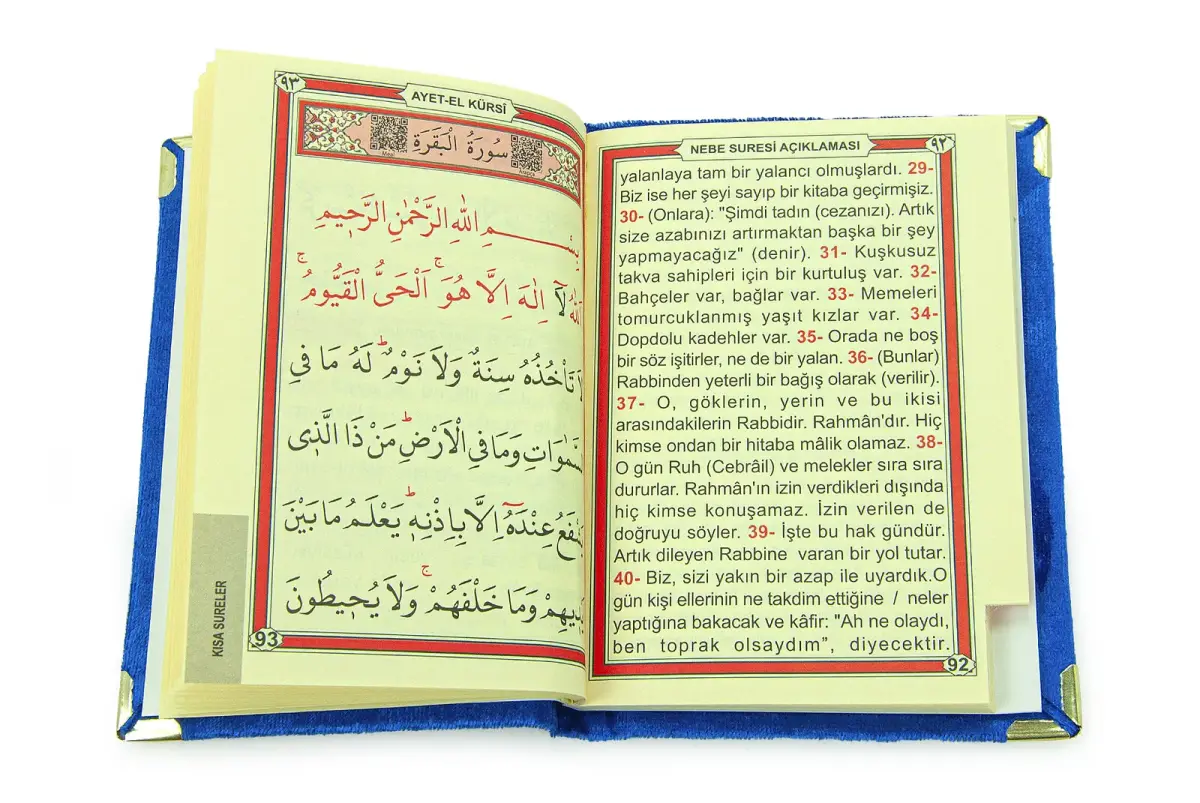 NEBE SURESİ AÇIKLAMASI
٩٢
yalanlaya tam bir yalancı olmuşlardı. 29-
Biz ise her şeyi sayıp bir kitaba geçirmişiz.
30- (Onlara): "Şimdi tadın (cezanızı). Artık
size azabınızı artırmaktan başka bir şey
yapmayacağız" (denir). 31- Kuşkusuz
takva sahipleri için bir kurtuluş var. 32-
Bahçeler var, bağlar var. 33- Memeleri
tomurcuklanmış yaşıt kızlar var. 34-
Dopdolu kadehler var. 35- Orada ne boş
bir söz işitirler, ne de bir yalan. 36- (Bunlar)
Rabbinden yeterli bir bağış olarak (verilir).
37- O, göklerin, yerin ve bu ikisi
arasındakilerin Rabbidir. Rahmân'dır. Hiç
kimse ondan bir hitaba mâlik olamaz. 38-
O gün Ruh (Cebrâil) ve melekler sıra sıra
dururlar. Rahmân'ın izin verdikleri dışında
hiç kimse konuşamaz. İzin verilen de
doğruyu söyler. 39- İşte bu hak gündür.
Artık dileyen Rabbine varan bir yol tutar.
40- Biz, sizi yakın bir azap ile uyardık.O
gün kişi ellerinin ne takdim ettiğine / neler
yaptığına bakacak ve kâfir: "Ah ne olaydı,
ben toprak olsaydım”, diyecektir.
92
٩٣
AYET-EL KÜRSİ
سُورَةُ الْبَقَرَةِ
بِسْــــمِ اللهِ الرَّحْمٰنِ الرَّحِيمِ
اَللهُ لَا اِلٰهَ اِلَّا هُوَ ۚ اَلْحَىُّ الْقَيُّومُ ۚ
لَا تَأْخُذُهُ سِنَةٌ وَلَا نَوْمٌ ۜ لَهُ مَا فِي
السَّمٰوَاتِ وَمَا فِي الْاَرْضِ ۜ مَنْ ذَا الَّذِى
يَشْفَعُ عِنْدَهُٓ اِلَّا بِاِذْنِهِ ۜ يَعْلَمُ مَا بَيْنَ
اَيْدِيهِمْ وَمَا خَلْفَهُمْ ۚ وَلَا يُحِيطُونَ
93
KISA SURELER